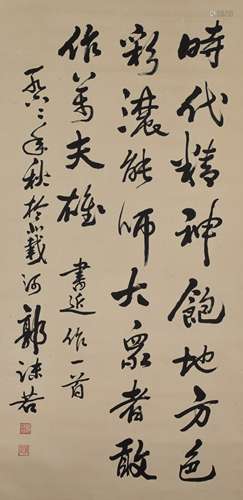 時代精神飽地方色
彩濃能師大眾者敢
作萬夫雄 書近作一首
一九六二年秋於北戴河 郭沫若